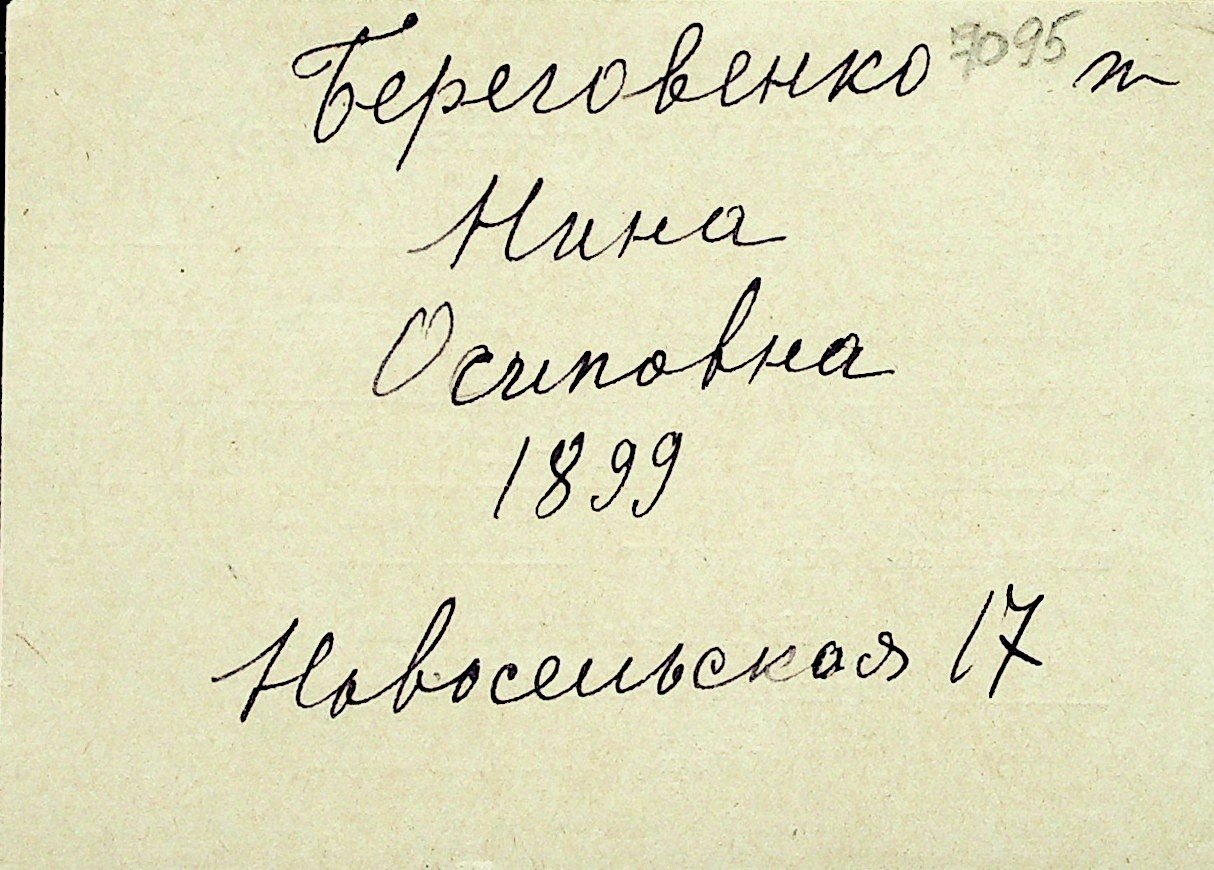 Береговенко 7095
Нина
Осиповна
1899
Новосельская 17